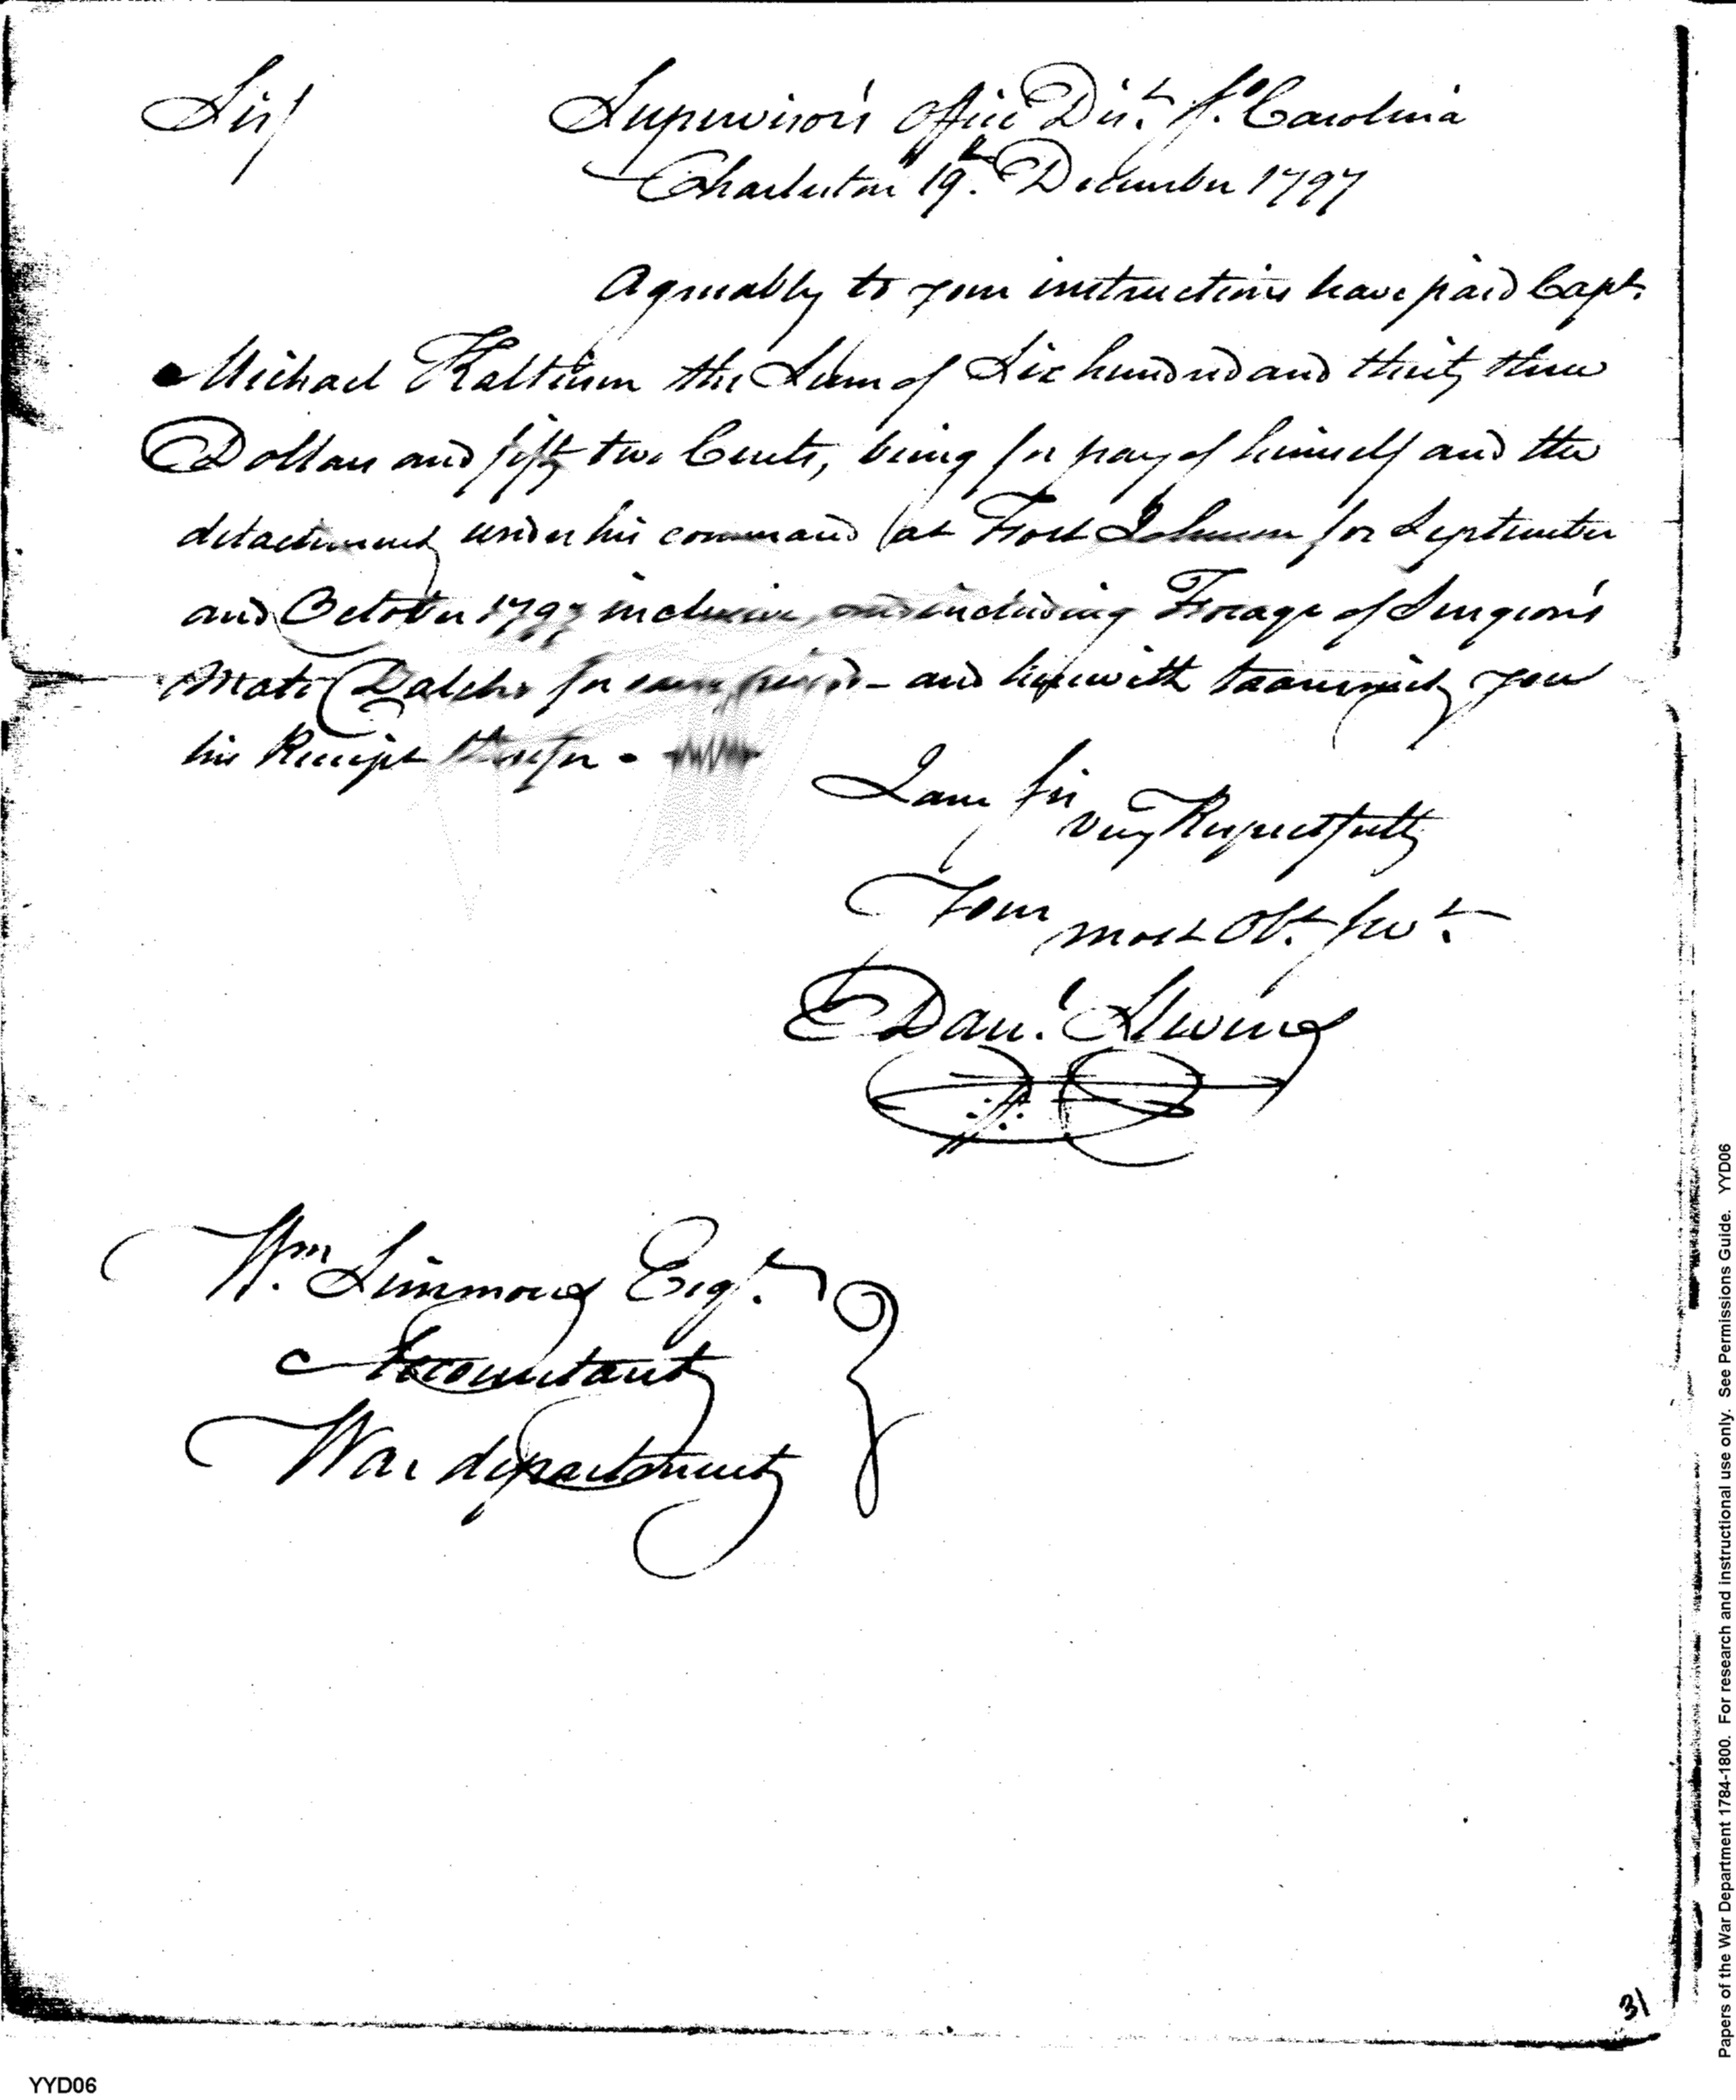 Sir/ Supervisor's Office Dist. So. Carolina
Charleston 19th. December 1797
Agreeably to your instructions have paid Capt.
Michael Kalteisen the Sum of Six hundred and thirty three
Dollars and fifty two Cents, being for pay of himself and the
detachment under his command (at Fort Johnson for September
and October 1797 inclusive, and including Forage of Surgeon's
Mate Dalcho for same period - and herewith transmit you
his Receipt therefor -
I am Sir
very Respectfully
Your most Obt. Servt.
Danl. Stevens
Wm. Simmons Esqr.
Accountant
War department
31
YYD06
Papers of the War Department 1784-1800. For research and instructional use only. See Permissions Guide. YYD06